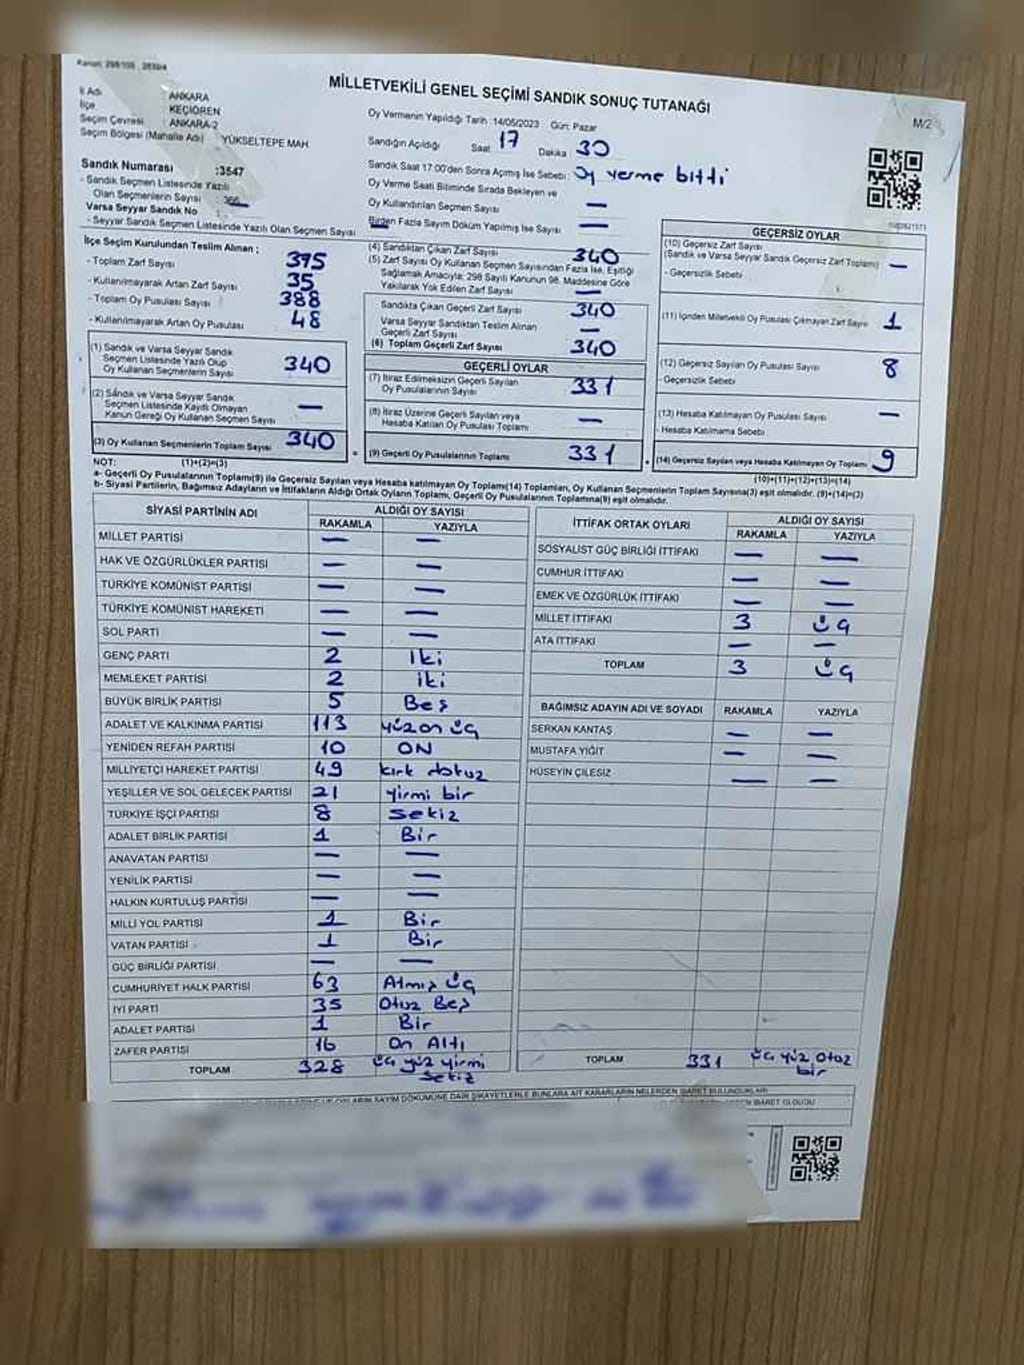 MİLLETVEKİLİ GENEL SEÇİMİ SANDIK SONUÇ TUTANAĞI
M/2
İl Adı ANKARA
İlçe KEÇİÖREN
Seçim Çevresi ANKARA-2
Seçim Bölgesi (Mahalle Adı) YÜKSELTEPE MAH.
Oy Vermenin Yapıldığı Tarih :14/05/2023 Gün: Pazar
Sandığın Açıldığı Saat 17 Dakika 30
Sandık Saat 17:00'den Sonra Açılmış İse Sebebi: Oy verme bitti
Oy Verme Saati Bitiminde Sırada Bekleyen ve
Oy Kullandırılan Seçmen Sayısı —
Birden Fazla Sayım Döküm Yapılmış İse Sayısı —
Sandık Numarası :3547
- Sandık Seçmen Listesinde Yazılı
Olan Seçmenlerin Sayısı
Varsa Seyyar Sandık No
- Seyyar Sandık Seçmen Listesinde Yazılı Olan Seçmen Sayısı
İlçe Seçim Kurulundan Teslim Alınan ;
- Toplam Zarf Sayısı 375
- Kullanılmayarak Artan Zarf Sayısı 35
- Toplam Oy Pusulası Sayısı 388
- Kullanılmayarak Artan Oy Pusulası 48
(1) Sandık ve Varsa Seyyar Sandık
Seçmen Listesinde Yazılı Olup
Oy Kullanan Seçmenlerin Sayısı 340
(2) Sandık ve Varsa Seyyar Sandık
Seçmen Listesinde Kayıtlı Olmayan
Kanun Gereği Oy Kullanan Seçmen Sayısı —
(3) Oy Kullanan Seçmenlerin Toplam Sayısı 340
(4) Sandıktan Çıkan Zarf Sayısı 340
(5) Zarf Sayısı Oy Kullanan Seçmen Sayısından Fazla İse, Eşitliği
Sağlamak Amacıyla; 298 Sayılı Kanunun 98. Maddesine Göre
Yakılarak Yok Edilen Zarf Sayısı —
Sandıkta Çıkan Geçerli Zarf Sayısı 340
Varsa Seyyar Sandıktan Teslim Alınan
Geçerli Zarf Sayısı —
(6) Toplam Geçerli Zarf Sayısı 340
GEÇERLİ OYLAR
(7) İtiraz Edilmeksizin Geçerli Sayılan
Oy Pusulalarının Sayısı 331
(8) İtiraz Üzerine Geçerli Sayılan veya
Hesaba Katılan Oy Pusulası Toplamı —
(9) Geçerli Oy Pusulalarının Toplamı 331
GEÇERSİZ OYLAR
(10) Geçersiz Zarf Sayısı
(Sandık ve Varsa Seyyar Sandık Geçersiz Zarf Toplamı) —
- Geçersizlik Sebebi
(11) İçinden Milletvekili Oy Pusulası Çıkmayan Zarf Sayısı 1
(12) Geçersiz Sayılan Oy Pusulası Sayısı 8
- Geçersizlik Sebebi
(13) Hesaba Katılmayan Oy Pusulası Sayısı —
- Hesaba Katılmama Sebebi
(14) Geçersiz Sayılan veya Hesaba Katılmayan Oy Toplamı 9
NOT: (1)+(2)=(3) (10)+(11)+(12)+(13)=(14)
a- Geçerli Oy Pusulalarının Toplamı(9) ile Geçersiz Sayılan veya Hesaba katılmayan Oy Toplamı(14) Toplamları, Oy Kullanan Seçmenlerin Toplam Sayısına(3) eşit olmalıdır. (9)+(14)=(3)
b- Siyasi Partilerin, Bağımsız Adayların ve İttifakların Aldığı Ortak Oyların Toplamı, Geçerli Oy Pusulalarının Toplamına(9) eşit olmalıdır.
SİYASİ PARTİNİN ADI ALDIĞI OY SAYISI
RAKAMLA YAZIYLA
MİLLET PARTİSİ — —
HAK VE ÖZGÜRLÜKLER PARTİSİ — —
TÜRKİYE KOMÜNİST PARTİSİ — —
TÜRKİYE KOMÜNİST HAREKETİ — —
SOL PARTİ — —
GENÇ PARTİ 2 iki
MEMLEKET PARTİSİ 2 iki
BÜYÜK BİRLİK PARTİSİ 5 Beş
ADALET VE KALKINMA PARTİSİ 113 yüz on üç
YENİDEN REFAH PARTİSİ 10 ON
MİLLİYETÇİ HAREKET PARTİSİ 49 kırk dokuz
YEŞİLLER VE SOL GELECEK PARTİSİ 21 yirmi bir
TÜRKİYE İŞÇİ PARTİSİ 8 sekiz
ADALET BİRLİK PARTİSİ 1 Bir
ANAVATAN PARTİSİ — —
YENİLİK PARTİSİ — —
HALKIN KURTULUŞ PARTİSİ — —
MİLLİ YOL PARTİSİ 1 Bir
VATAN PARTİSİ 1 Bir
GÜÇ BİRLİĞİ PARTİSİ — —
CUMHURİYET HALK PARTİSİ 63 Atmış üç
İYİ PARTİ 35 Otuz Beş
ADALET PARTİSİ 1 Bir
ZAFER PARTİSİ 16 On Altı
TOPLAM 328 üç yüz yirmi sekiz
İTTİFAK ORTAK OYLARI ALDIĞI OY SAYISI
RAKAMLA YAZIYLA
SOSYALİST GÜÇ BİRLİĞİ İTTİFAKI — —
CUMHUR İTTİFAKI — —
EMEK VE ÖZGÜRLÜK İTTİFAKI — —
MİLLET İTTİFAKI 3 üç
ATA İTTİFAKI — —
TOPLAM 3 üç
BAĞIMSIZ ADAYIN ADI VE SOYADI RAKAMLA YAZIYLA
SERKAN KANTAŞ — —
MUSTAFA YİĞİT — —
HÜSEYİN ÇİLESİZ — —
TOPLAM 331 üç yüz otuz bir